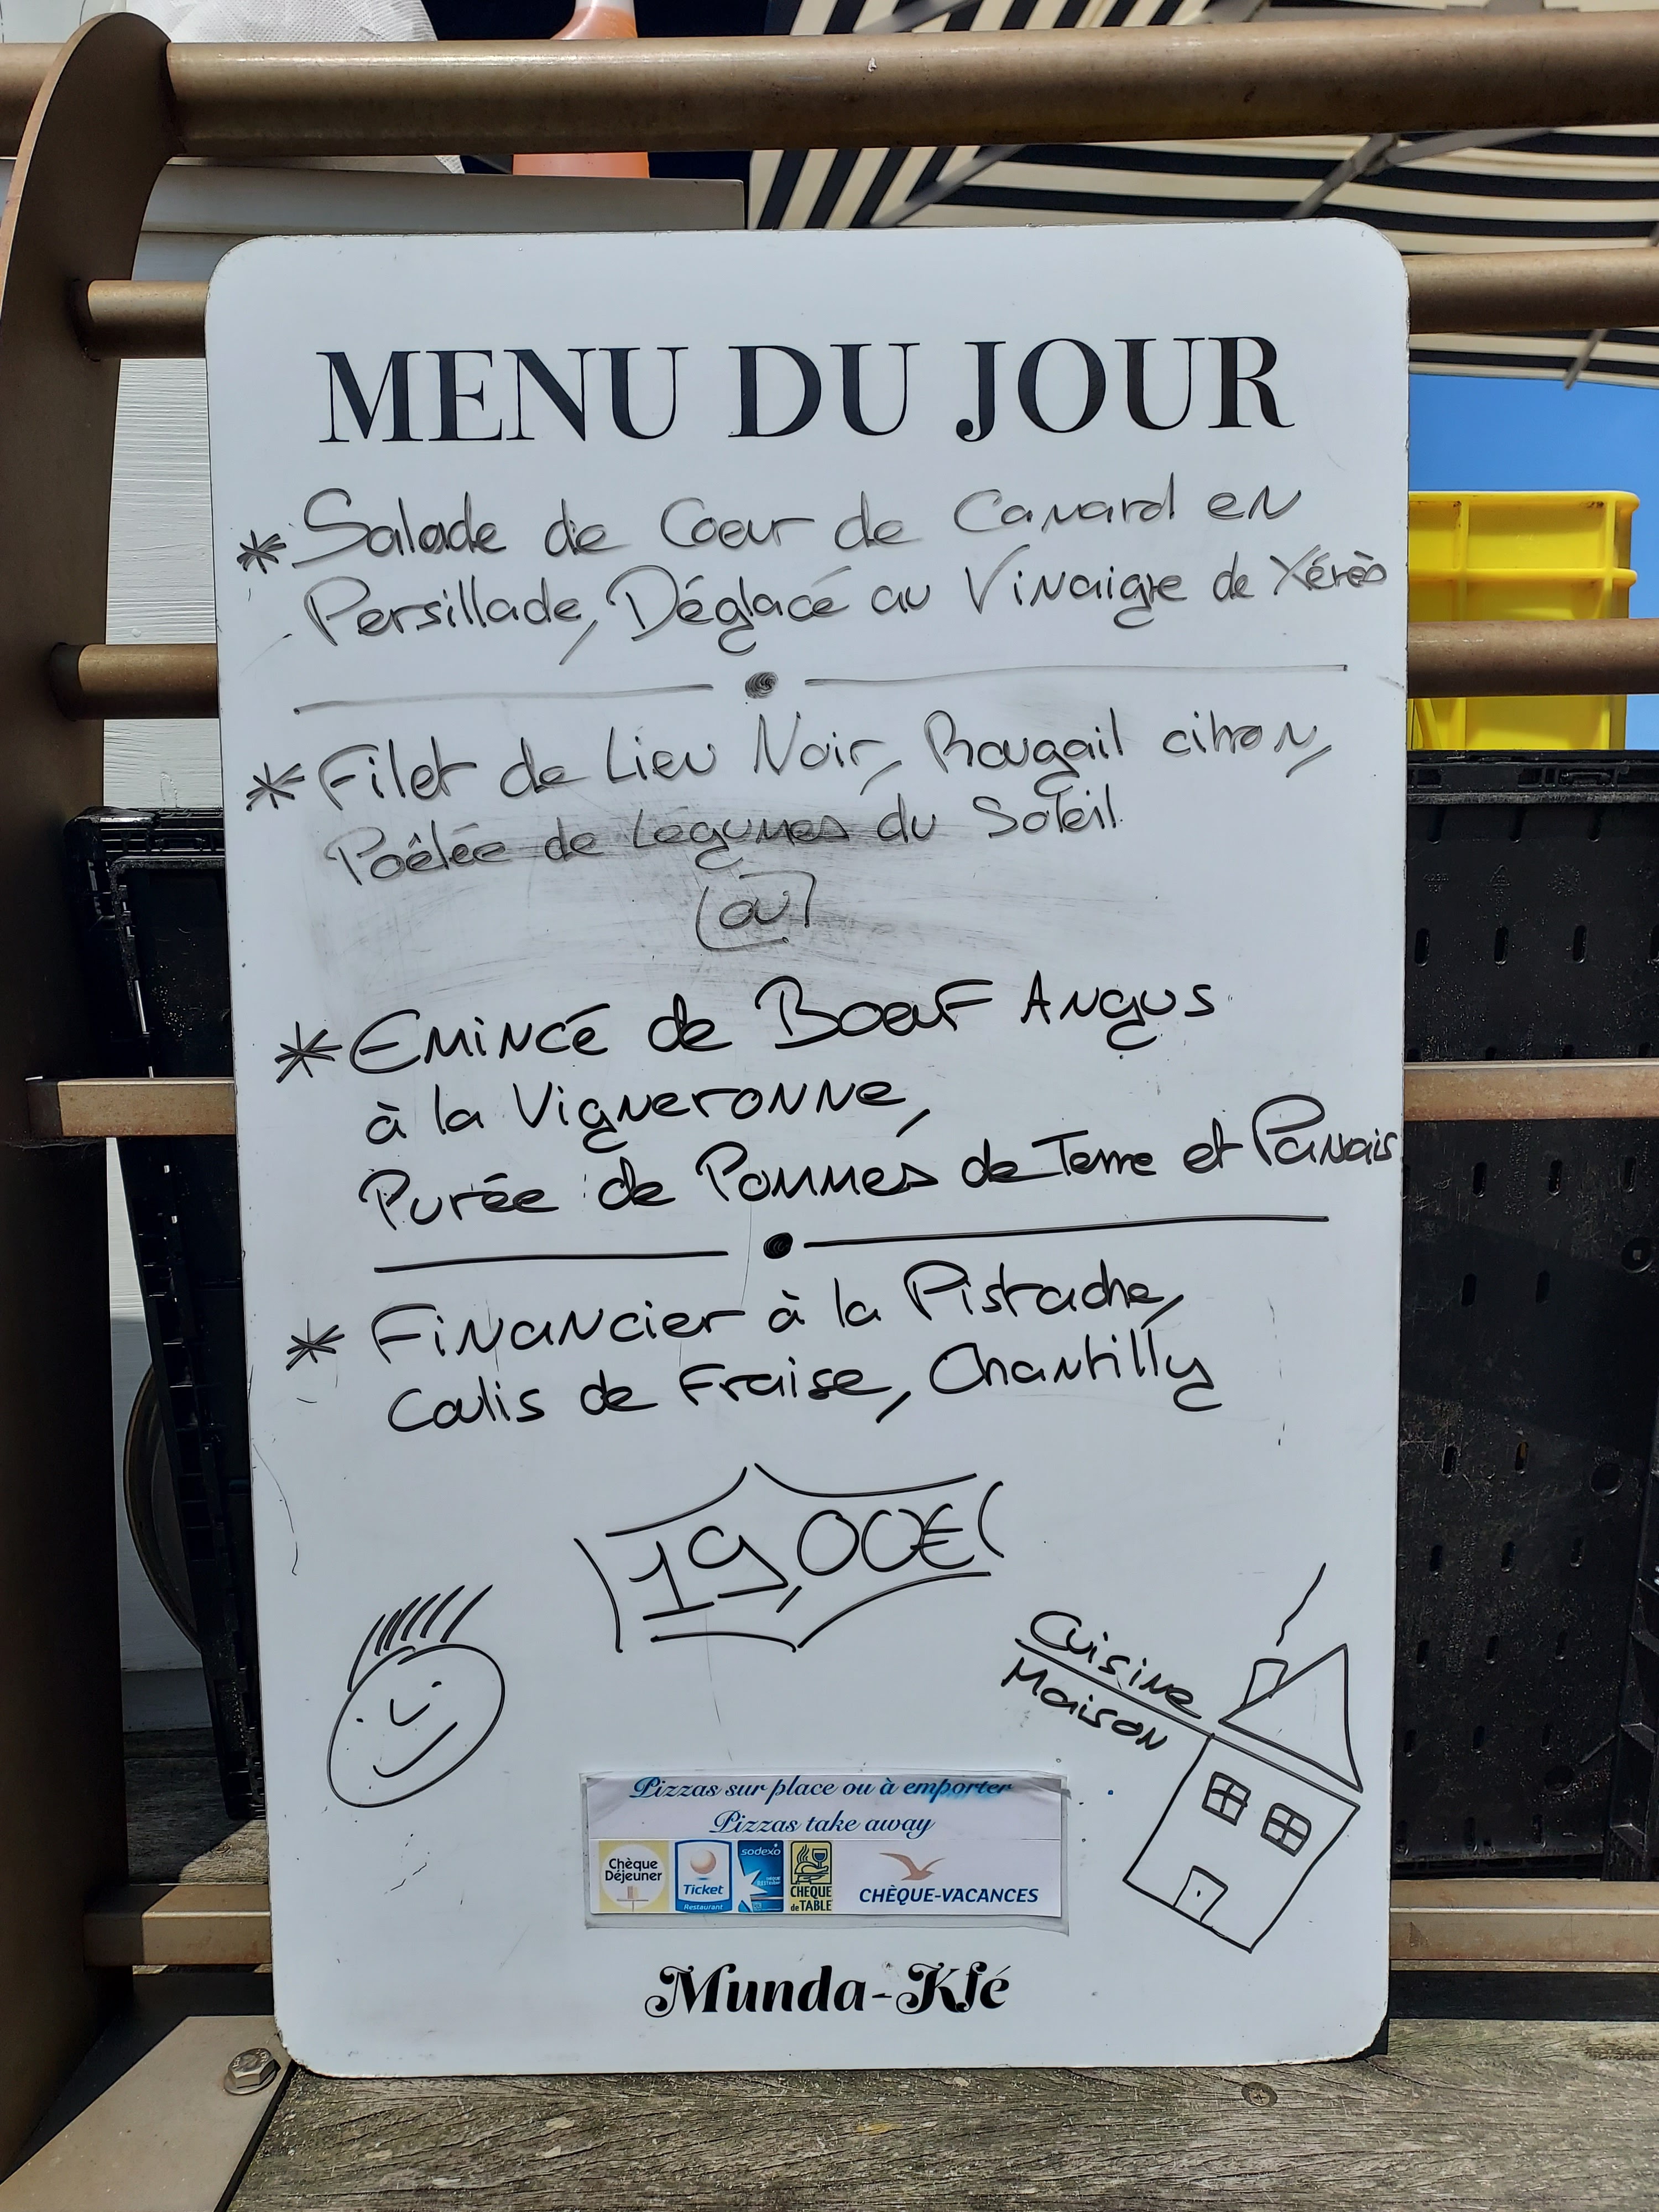 MENU DU JOUR
* Salade de Coeur de Canard en
Persillade, Déglacé au Vinaigre de Xérès
* Filet de Lieu Noir, Rougail citron,
Poêlée de Légumes du Soleil
ou
* Emincé de Boeuf Angus
à la Vigneronne,
Purée de Pommes de Terre et Panais
* Financier à la Pistache,
Coulis de Fraise, Chantilly
19,00€
Cuisine
Maison
Pizzas sur place ou à emporter
Pizzas take away
Chèque
Déjeuner
Ticket
Restaurant
sodexo
CHÈQUE
de TABLE
CHÈQUE-VACANCES
Munda-Kfé